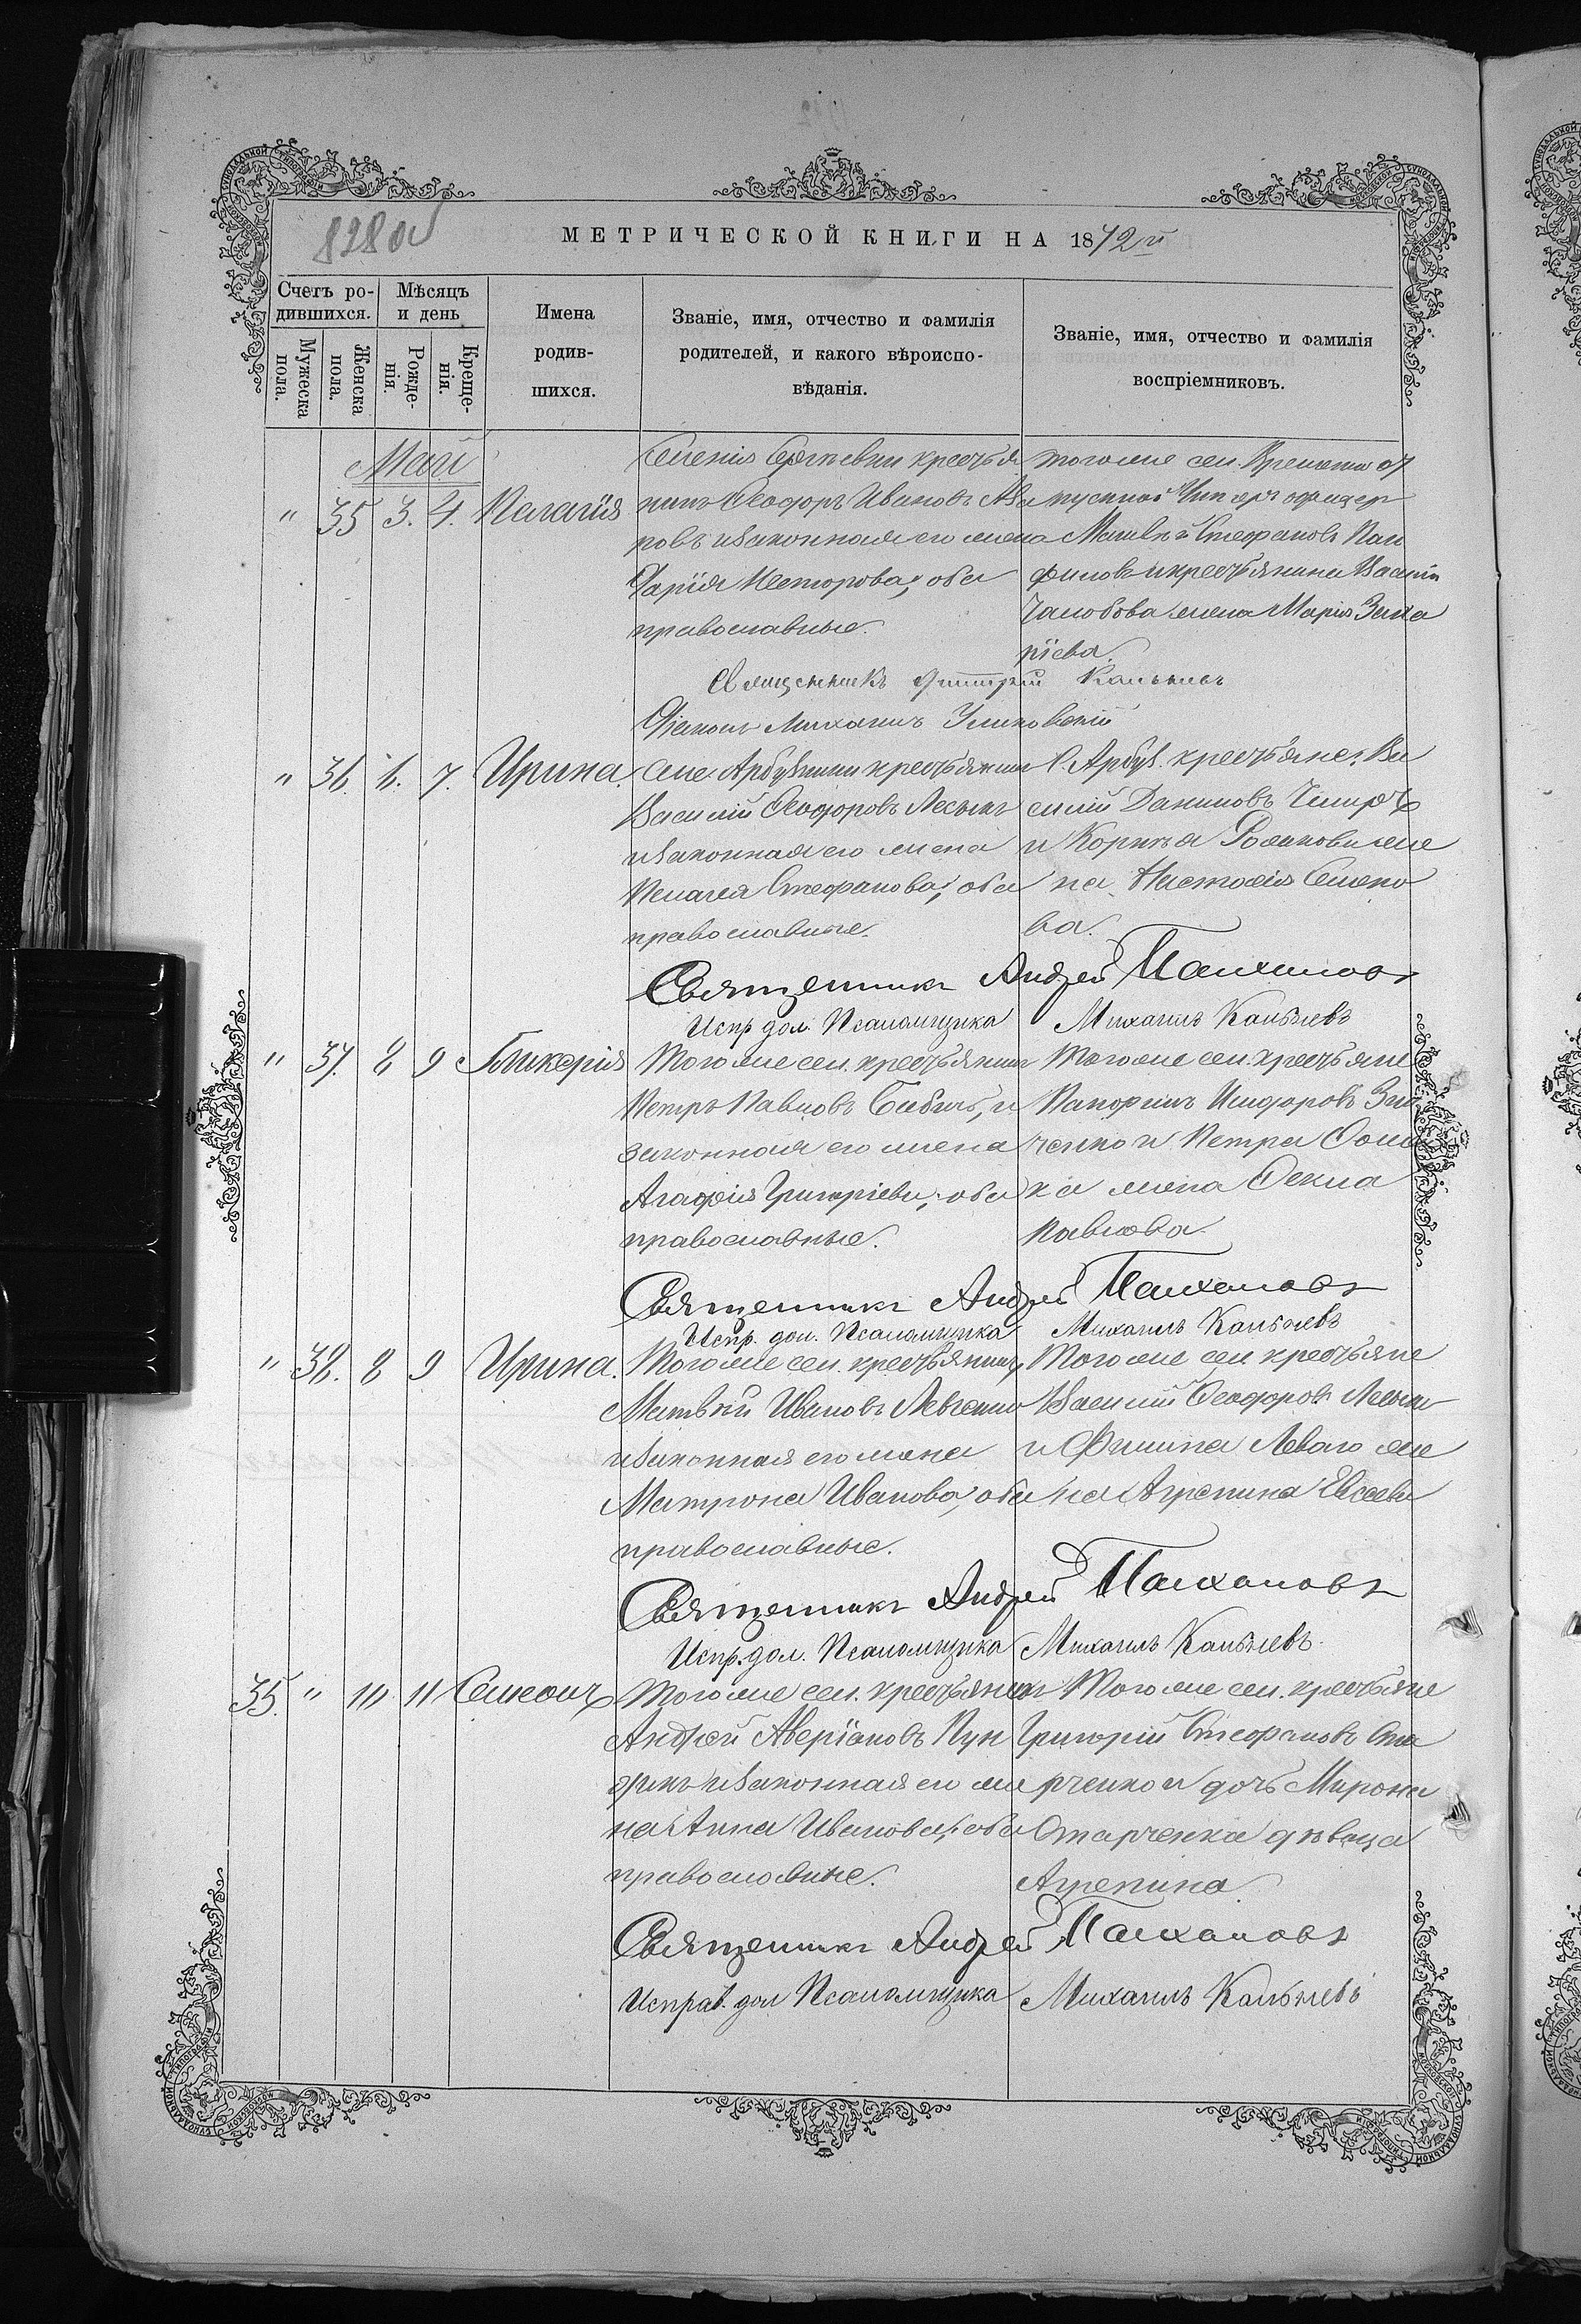 828 об
МЕТРИЧЕСКОЙ КНИГИ НА 1872й
Счетъ ро-
дившихся.
Мѣсяцъ
и день
Мужеска
пола.
Женска
пола.
Рожде-
нія.
Креще-
нія.
Имена
родив-
шихся.
Званіе, имя, отчество и фамилія
родителей, и какого вѣроиспо-
вѣданія.
Званіе, имя, отчество и фамилія
воспріемниковъ.
Май
" 35 3. 4. Пелагія
Селенія крестья
нинъ Ѳеодоръ Ивановъ
ровъ и законная его жена
Дарія Несторова, оба
православные.
тогоже сел. Временно от
пускной Унтеръ офицер
Матвѣй Стефановъ Пан
филовъ и крестьянина Василія
жена Марія Заха
ріева.
Священникъ Дмитрій
Діаконъ Михаилъ
" 36. 6. 7. Ирина.
Села Арбузинки крестьянинъ
Василій Ѳеодоровъ Лесыкъ
и законная его жена
Пелагея Стефанова, оба
православные.
С. Арбуз. крестьяне: Ва
силій Данииловъ
и Корнѣя Романова же
на Настасія Семено
ва.
Священникъ Андрей Палхановъ
Испр дол. Псаломщика Михаилъ
" 37. 8 9 Гликерія
Тогоже сел. крестьянинъ
Петръ Павловъ Бабичъ, и
законная его жена
Агафія Григоріева, оба
православные.
Тогоже сел. крестьяне
Исидоровъ
ченко и Петра
ка жена
Павлова.
Священникъ Андрей Палхановъ
Испр. дол. Псаломщика Михаилъ
" 38. 8 9 Ирина.
Тогоже сел. крестьянинъ
Матвѣй Ивановъ Левченко
и законная его жена
Матрона Иванова, оба
православные.
Тогоже сел крестьяне
Василій Ѳеодоровъ Лесыкъ
и Филипа Леваго же
на Агрепина Евсеева
Священникъ Андрей Палхановъ
Испр. дол. Псаломщика Михаилъ
35. " 10 11 Симеонъ
Тогоже сел. крестьянинъ
Андрей Аверіановъ Пун
дикъ и законная его же
на Анна Иванова, оба
православные.
Тогоже сел. крестьяне
Григорій Стефановъ Ста
рченко и дочь Мирона
Старченка дѣвица
Агрепина.
Священникъ Андрей Палхановъ
Исправ. дол Псаломщика Михаилъ